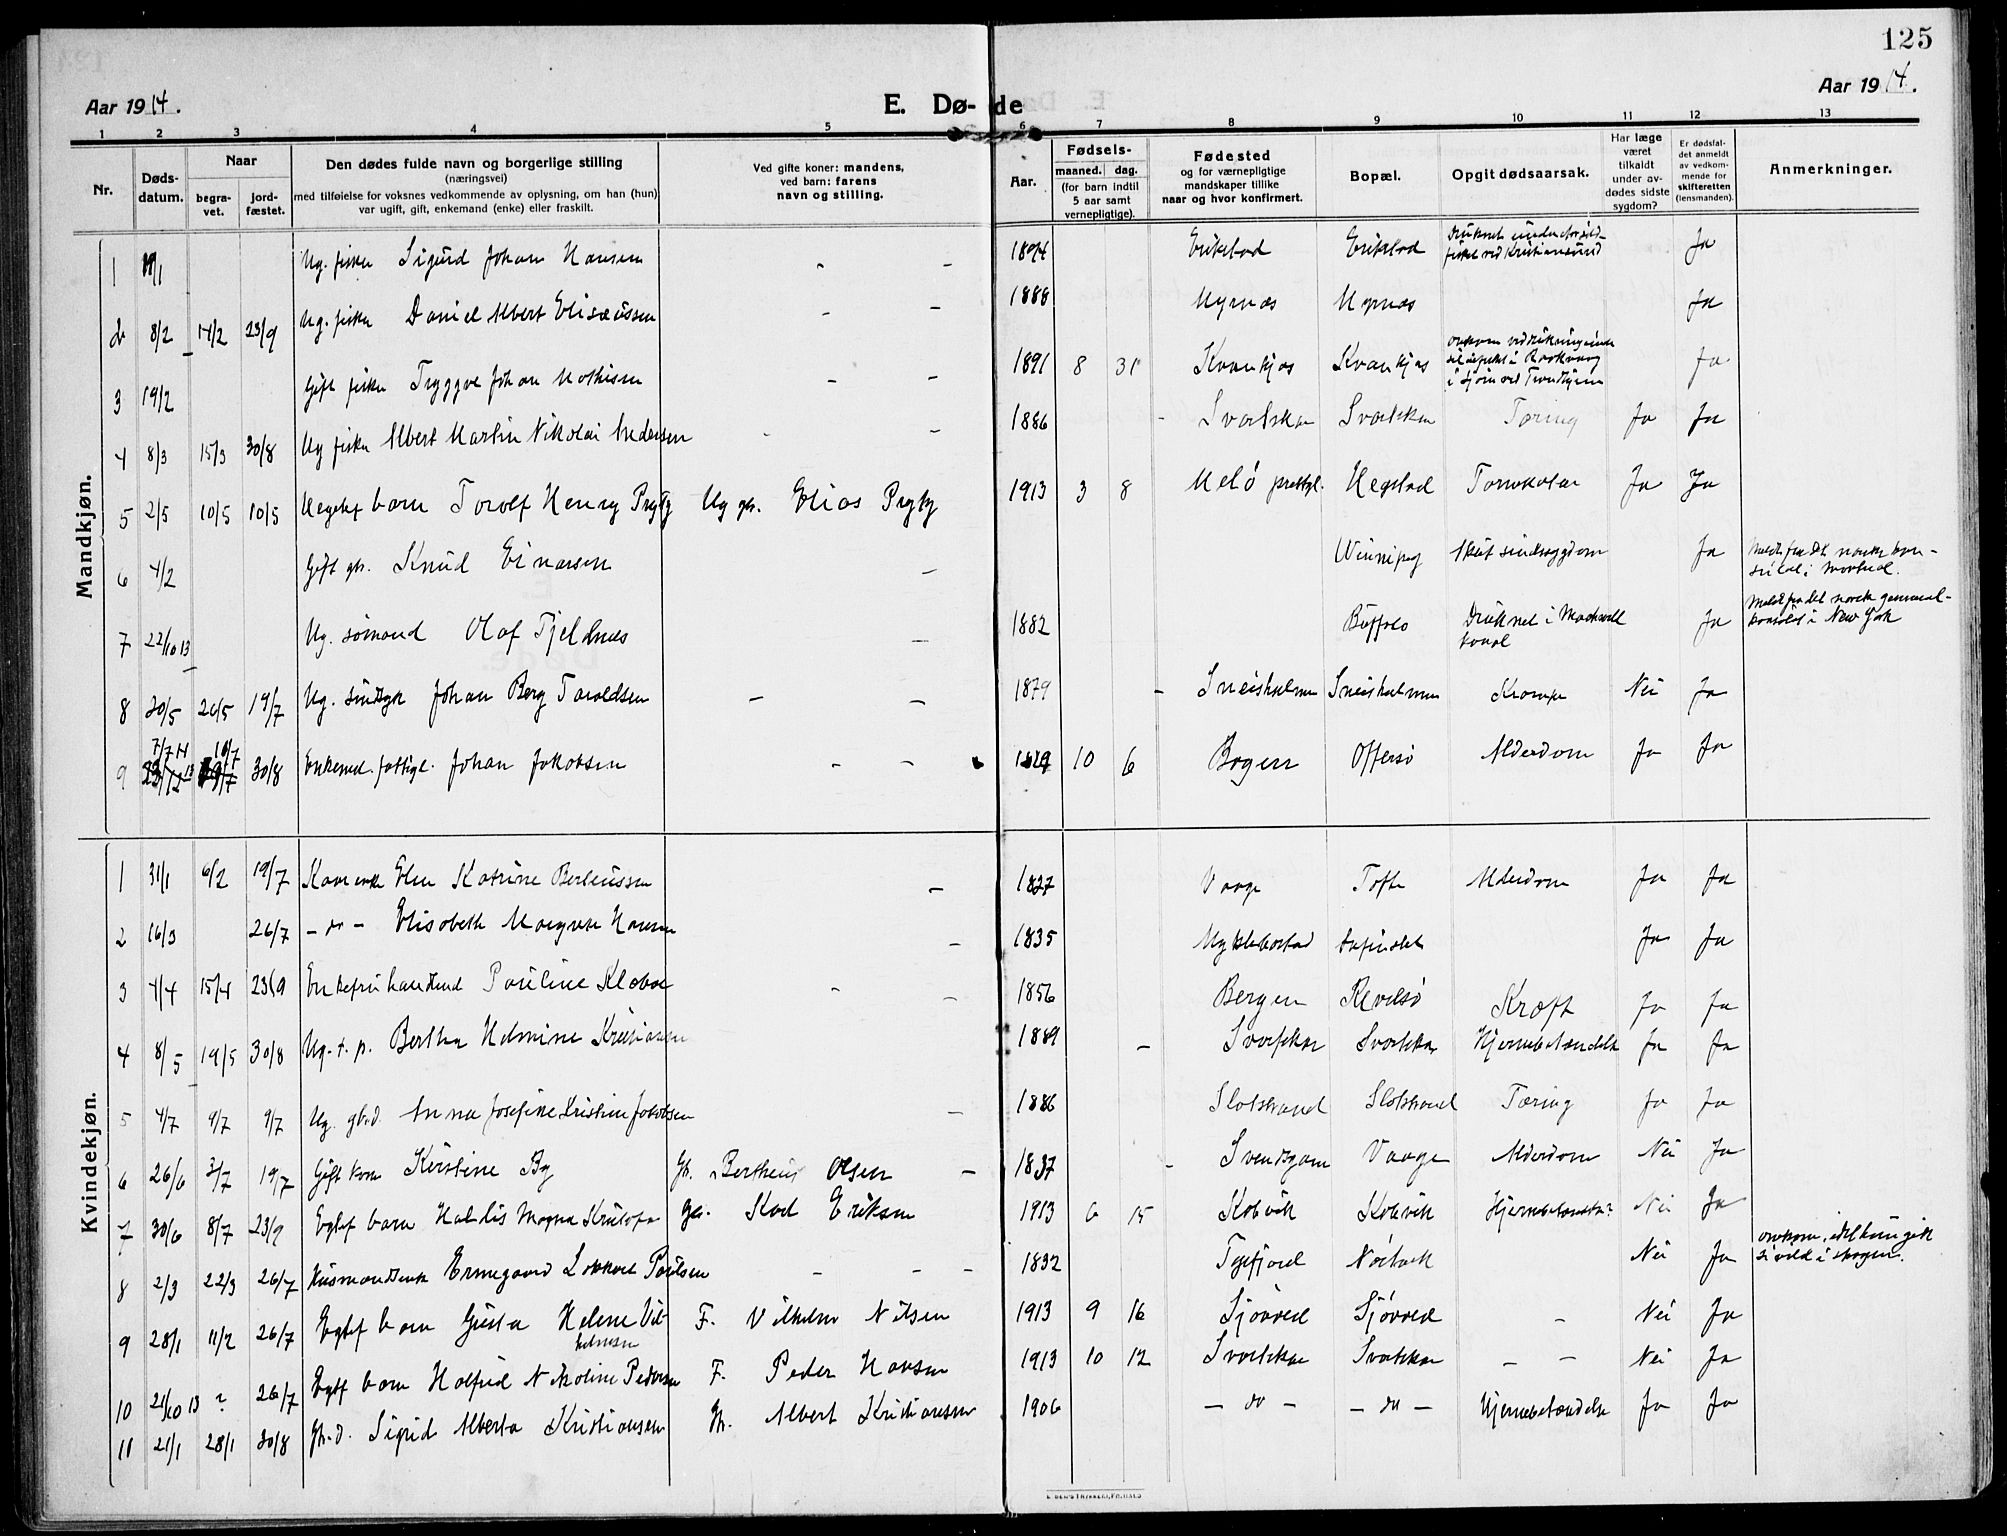 125
Aar 1914.
E. Dø- de
Aar 1914.
1 2 3 4 5 6 7 8 9 10 11 12 13
Nr.
Døds-
datum.
Naar
begra-
vet.
jord-
fæstet.
Den dødes fulde navn og borgerlige stilling
(næringsvei)
med tilføielse for voksnes vedkommende av oplysning, om han (hun)
var ugift, gift, enkemand (enke) eller fraskilt.
Ved gifte koner: mandens,
ved barn: farens
navn og stilling.
Aar.
Fødsels-
maaned. dag.
(for barn indtil
5 aar samt
vernepligtige).
Fødested
og for værnepligtige
mandskaper tillike
naar og hvor konfirmert.
Bopæl.
Opgit dødsaarsak.
Har læge
været
tilkaldt
under av-
dødes sidste
sygdom?
Er dødsfal-
det anmeldt
av vedkom-
mende for
skifteretten
(lensmanden).
Anmerkninger.
Mandkjøn.
1 Ug. fisker Sigurd Johan Hansen - - 1894 Erikstad Erikstad Druknet under sild- fisket ved Kristiansund Ja
2 8/2 14/2 23/9 Ug. fisker Daniel Albert Elisæussen - - 1888 Myrnes Myrnes Ja
3 19/2 Gift fisker Tryggve Johan Mathisen - - 1891 8 31 Kvankjos Kvankjos omkom ved i sjøen ved Trondhjem Ja
4 8/3 15/3 30/8 Ug fisker Albert Martin Nikolai Andersen - - 1886 - Svartskar Svartskar Tæring Ja Ja
5 2/5 10/5 10/5 Uegtef barn Torolf Henry Prytz Ug gb. Elias Prytz 1913 3 8 Melø prestgj. Hegstad Tarmkatar Ja Ja
6 4/2 Gift gb. Knud Einarsen - Winnipeg Akut sindssygdom Ja Meldt fra det norske kon- sulat i Montreal.
7 22/10 13 Ug. sømand Olaf Tjeldnes - 1882 Buffalo Druknet i kanal Ja Meldt fra det norske general- konsulat i New York
8 20/5 26/5 19/7 Ug. sindssyk Johan Berg Taraldsen - - 1879 - Sneisholmen Sneisholmen Krampe Nei Ja
9 7/7 14 16/7 30/8 Enkemd. fattigl. Johan Jakobsen - - 1829 10 6 Bogen Offersø Alderdom Ja Ja
Kvindekjøn.
1 31/1 6/2 19/7 Kaarenke Elen Katrine Bertheussen - 1827 Vaage Tofte Alderdom Ja Ja
2 16/3 26/7 - do - Elisabeth Margrete Hansen - 1835 Myklebostad Ja Ja
3 4/4 15/4 23/9 Enkefru Pauline Klæboe - - 1856 Bergen Revelsø Kræft Ja Ja
4 8/5 19/5 30/8 Ug. t. p. Bertha Helmine Kristiansen - 1889 Svartskar Svartskar Hjernebetændelse Ja Ja
5 4/7 9/7 9/7 Ug. gb.d. Anna Josefine Kristine Jakobsen - 1886 Slotstrand Slotstrand Tæring Ja Ja
6 26/6 3/7 19/7 Gift kone Kirstine By Gb. Bertheus Olsen - 1837 - Svendsgam Vaage Alderdom Nei Ja
7 30/6 8/7 23/9 Egtef barn Haldis Magna Gb. Eriksen 1913 6 15 Kobvik Kobvik Nei Ja
8 2/3 22/3 26/7 Husmandsenke Ermegaard Paulsen - - - 1832 Tysfjord Nei Ja omkom, idet hun gik sig vild i skogen.
9 28/1 11/2 26/7 Egtef barn Gusta Helene Vil- helmsen F. Vilhelm Nilsen 1913 9 16 Sjøvred Sjøvred - Nei Ja
10 21/10 13 ? 26/7 Egtf barn Halfrid Nikoline Pedersen F. Peder Hansen 1913 10 12 Svartskar Svartskar - - Nei Ja
11 21/1 28/1 30/8 Gb.d. Sigrid Alberta Kristiansen Gb. Albert Kristiansen 1906 - do - - do - Hjernebetændelse Ja Ja